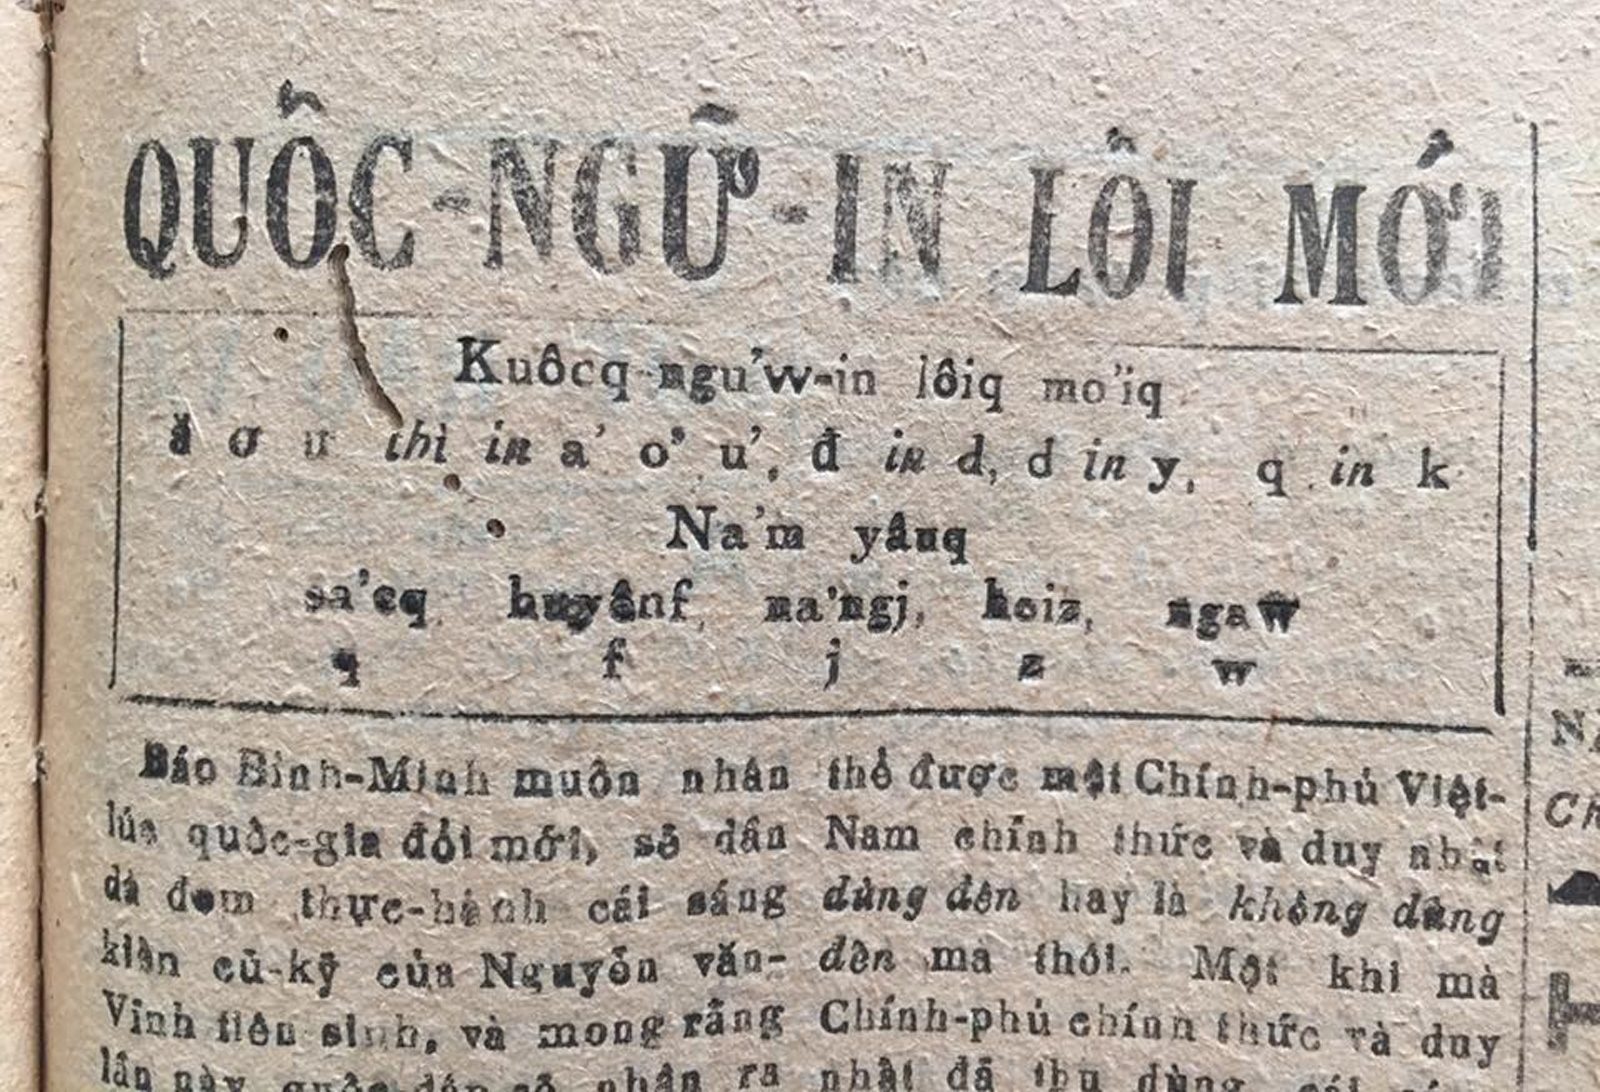 QUỐC-NGỮ-IN LỐI MỚI
Kuôcq ngu'w-in lôiq mo'iq
ă ơ ư thì in a' o' u', đ in d, d in y, q in k
Na'm yâuq
sa'cq, huyênf, na'ngj, hoiz, ngaw
q f j z w
Báo Bình-Minh muôn nhân
lúc quốc-gia đổi mới, sẽ dần
dà đem thực-hành cái sáng
kiến cũ-kỹ của Nguyễn văn-
Vinh tiên sinh, và mong rằng
lần này quốc-dân sẽ nhận ra
thể được một Chính-phủ Việt-
Nam chính thức và duy nhất
dùng đến hay là không dùng
đến mà thôi. Một khi mà
Chính-phủ chính thức và duy
nhất đã thu dùng cái
N
Ch